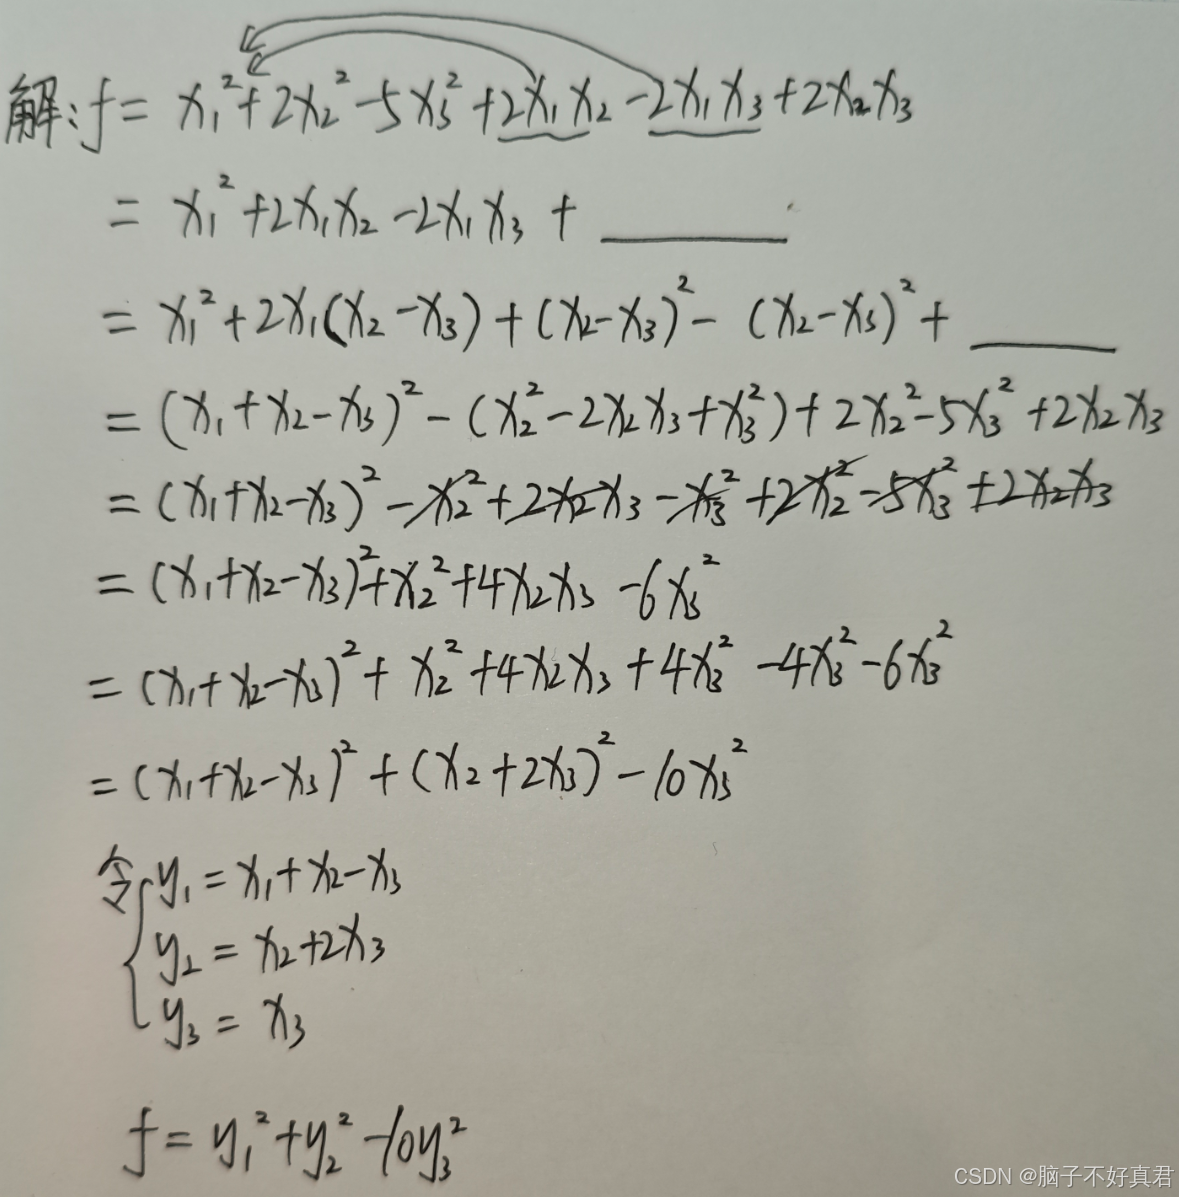 解: f = x₁² + 2x₂² - 5x₃² + 2x₁x₂ - 2x₁x₃ + 2x₂x₃
= x₁² + 2x₁x₂ - 2x₁x₃ + ______
= x₁² + 2x₁(x₂ - x₃) + (x₂ - x₃)² - (x₂ - x₃)² + ______
= (x₁ + x₂ - x₃)² - (x₂² - 2x₂x₃ + x₃²) + 2x₂² - 5x₃² + 2x₂x₃
= (x₁ + x₂ - x₃)² - x₂² + 2x₂x₃ - x₃² + 2x₂² - 5x₃² + 2x₂x₃
= (x₁ + x₂ - x₃)² + x₂² + 4x₂x₃ - 6x₃²
= (x₁ + x₂ - x₃)² + x₂² + 4x₂x₃ + 4x₃² - 4x₃² - 6x₃²
= (x₁ + x₂ - x₃)² + (x₂ + 2x₃)² - 10x₃²
令 { y₁ = x₁ + x₂ - x₃
y₂ = x₂ + 2x₃
y₃ = x₃
f = y₁² + y₂² - 10y₃²
CSDN @脑子不好真君